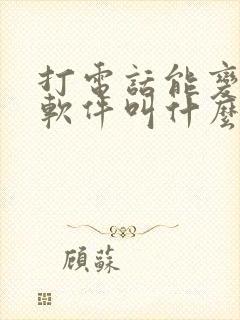 打電話能變
軟件叫什麼
顧蘇